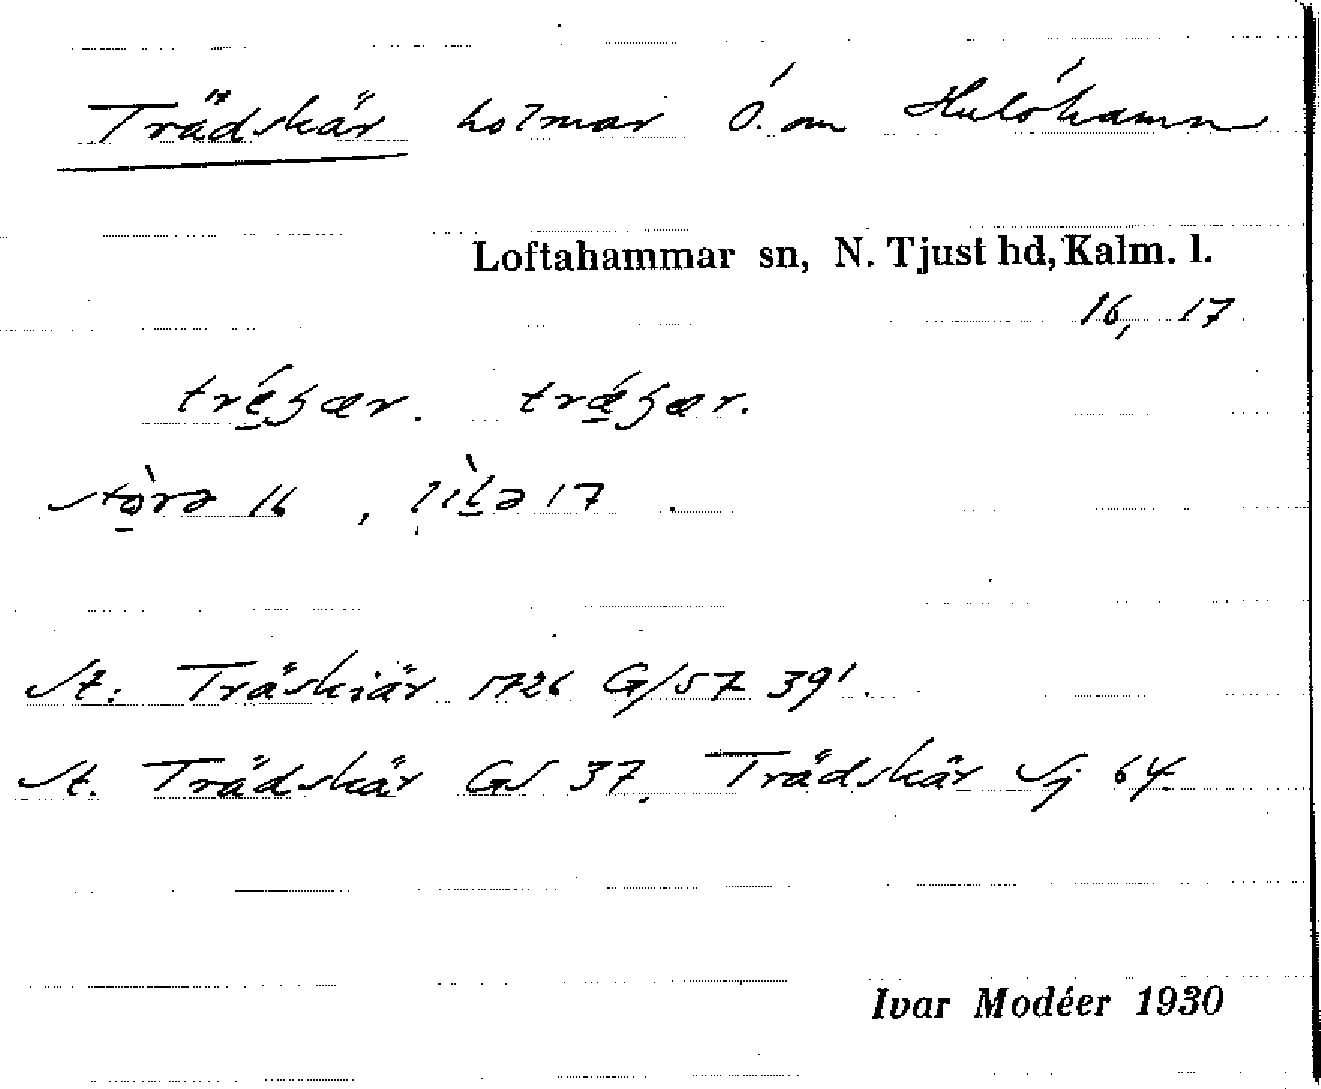 Trädskär holmar Ö. om Hulöhamn
Loftahammar sn, N. Tjust hd, Kalm. l.
16, 17
16, 17
St: Träskiär 1726 G/57 39'.
St. Trädskär GS 37. Trädskär Sj 64.
Ivar Modéer 1930